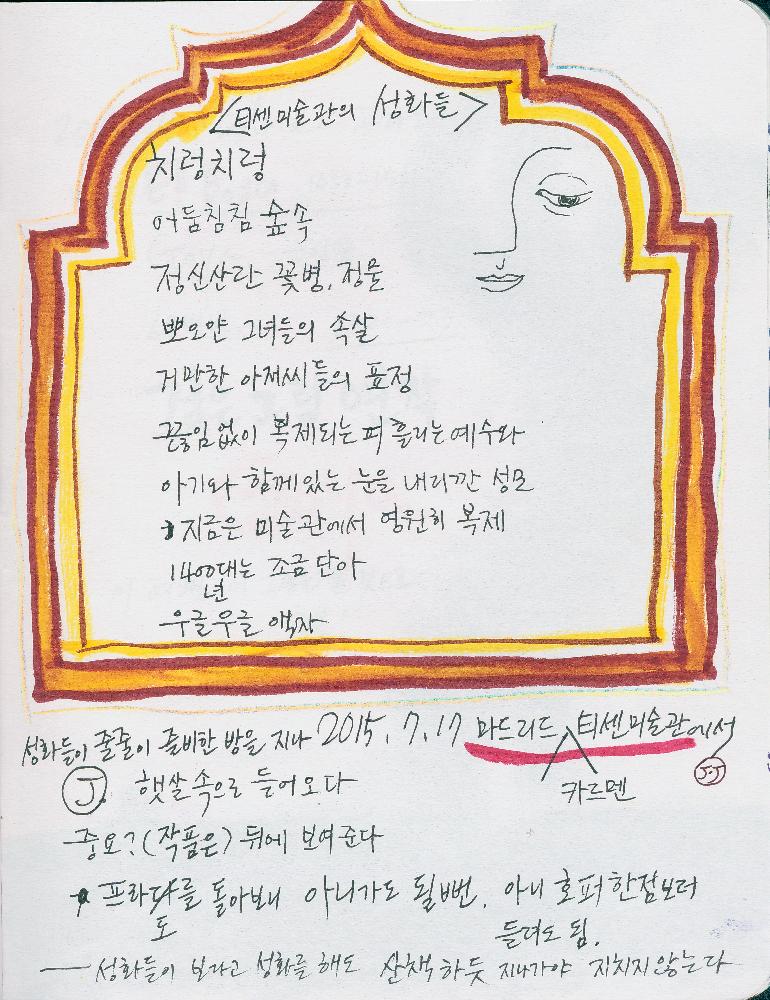 <티센미술관의 성화들>
치렁치렁
어둠침침 숲속
정신산란 꽃병, 정물
뽀오얀 그녀들의 속살
거만한 아저씨들의 표정
끊임없이 복제되는 피 흘리는 예수와
아기와 함께있는 눈을 내리깐 성모
지금은 미술관에서 영원히 복제
1400년대는 조금 단아
우글우글 액자
성화들이 줄줄이 즐비한 방을 지나 2015. 7. 17 마드리드 카르멘 티센미술관에서
J.J
J. 햇살 속으로 들어오다
중요?(작품은) 뒤에 보여준다
프라도를 돌아보니 아니가도 될뻔. 아니 호퍼 한점보러
들려도 됨.
— 성화들이 보라고 성화를 해도 산책하듯 지나가야 지치지 않는다